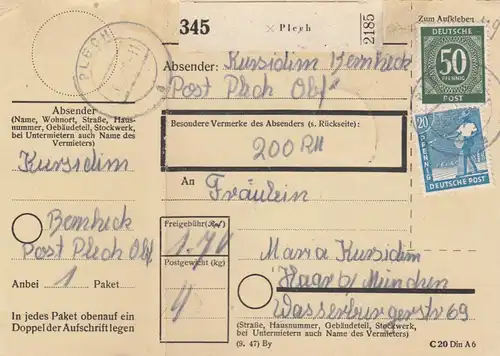 345
× Plech
2185
Zum Aufkleben
PLECH
a
DEUTSCHE
50
PFENNIG
POST
20
PFENNIG
DEUTSCHE POST
Absender: Kursidim Bernheck
Post Plech Obf
Absender
(Name, Wohnort, Straße, Haus-
nummer, Gebäudeteil, Stockwerk,
bei Untermietern auch Name des
Vermieters)
Kursidim
Bernheck
Post Plech Obf.
Anbei 1 Paket
In jedes Paket obenauf ein
Doppel der Aufschrift legen
Besondere Vermerke des Absenders (s. Rückseite):
200 RM
An
Fräulein
Freigebühr (Rpf)
1.70
Postgewicht (kg)
4
Maria Kursidim
Haar b/ München
Wasserburgerstr 69
(Straße, Hausnummer, Gebäudeteil, Stockwerk,
bei Untermietern auch Name des Vermieters)
(9. 47) By
C 20 Din A 6